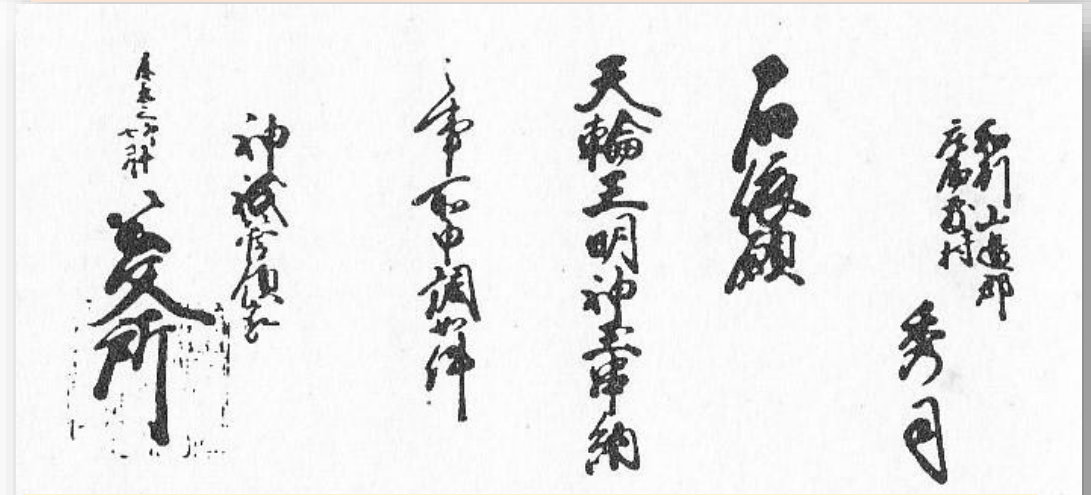 和州山邊郡
庄屋敷村
秀司
右依願
天輪王明神 納
之事所申調如件
神祇管領家
慶應三卯年
七月
公文所